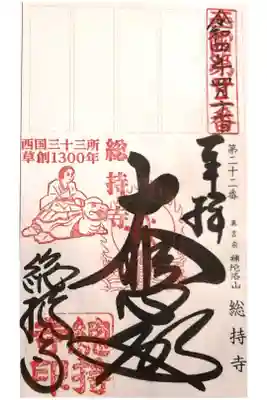 令和四年
奉拝
第二十二番
真言宗
補陀洛山
総持寺
大悲殿
総持寺
西国三十三所
草創1300年
総持寺